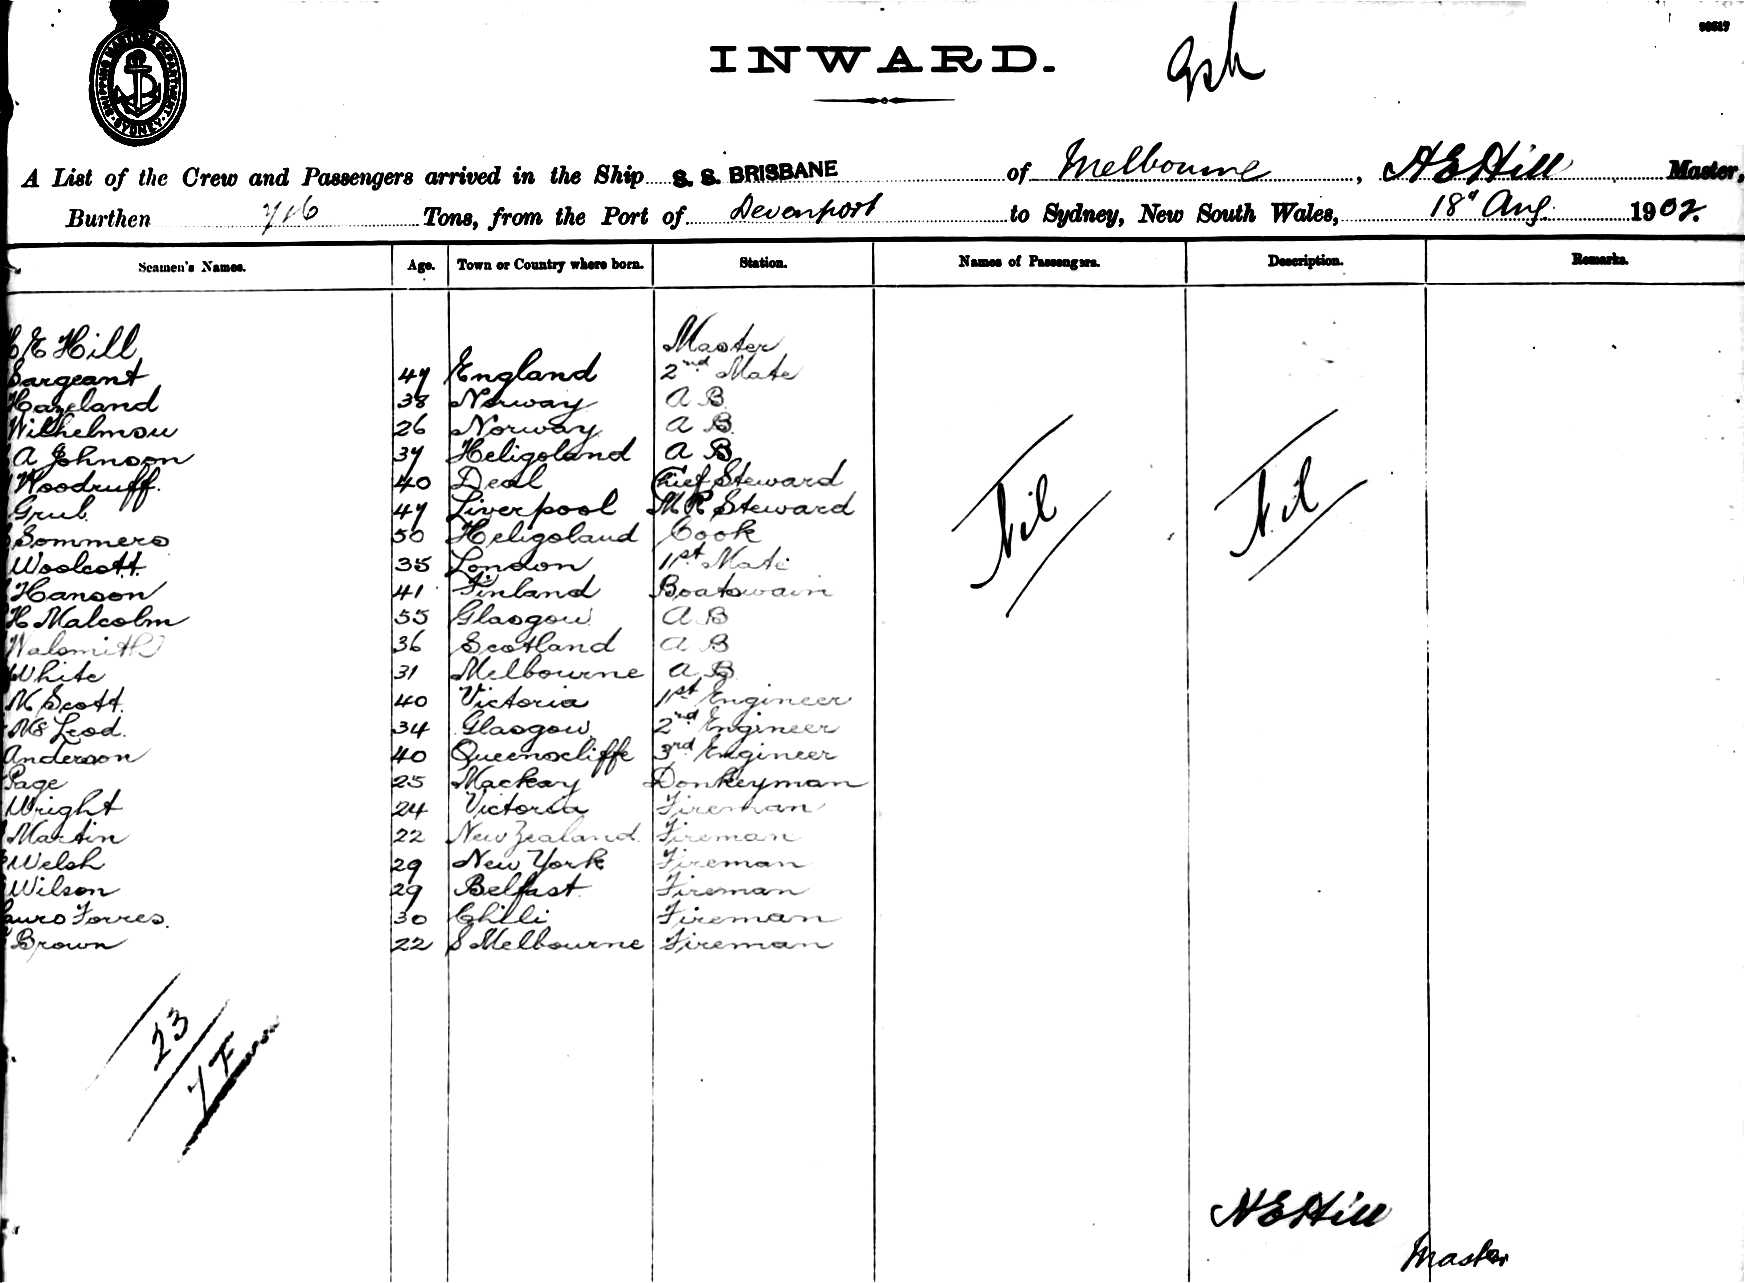 SHIPPING MASTERS DEPARTMENT SYDNEY
INWARD.
A List of the Crew and Passengers arrived in the Ship S. S. BRISBANE of Melbourne, H E Hill Master,
Burthen Tons, from the Port of Devonport to Sydney, New South Wales, 18" Aug. 1902.
Seamen's Names. Age. Town or Country where born. Station. Names of Passengers. Description. Remarks.
E Hill Master
Sargeant 47 England 2nd Mate
Hazeland 38 Norway A B
Wilhelmsen 26 Norway A B
A Johnson 37 Heligoland A B
Woodruff. 40 Deal Chief Steward
Grub. 47 Liverpool Steward
Sommers 50 Heligoland Cook
Woolcott. 35 London 1st Mate
Hanson 41 Finland Boatswain
H Malcolm 55 Glasgow A B
36 Scotland A B
White 31 Melbourne A B
M Scott. 40 Victoria 1st Engineer
Mc Leod. 34 Glasgow 2nd Engineer
Anderson 40 Queenscliffe 3rd Engineer
Page 25 Mackay Donkeyman
Wright 24 Victoria Fireman
Martin 22 New Zealand Fireman
Welsh 29 New York Fireman
Wilson 29 Belfast Fireman
Torres. 30 Chili Fireman
Brown 22 S Melbourne Fireman
Nil Nil
23
H E Hill
Master